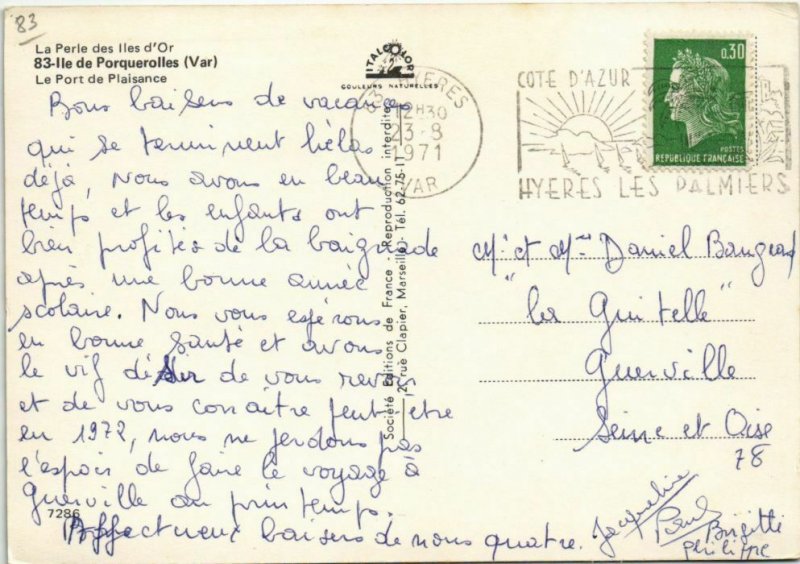 83
La Perle des Iles d'Or
83-Ile de Porquerolles (Var)
Le Port de Plaisance
ITALCOLOR
COULEURS NATURELLES
83 HYERES
12H30
23-8
1971
VAR
COTE D'AZUR
HYERES LES PALMIERS
0,30
POSTES
REPUBLIQUE FRANÇAISE
Bons baisers de vacances
qui se terminent hélas
déjà, nous avons eu beau
temps et les enfants ont
bien profités de la baignade
après une bonne année
scolaire. Nous vous espérons
en bonne santé et avons
le vif désir de vous revoir
et de vous connaitre peut-être
en 1972, nous ne perdons pas
l'espoir de faire le voyage à
Guerville au printemps.
Affectueux baisers de nous quatre.
Jacqueline
Paul
Brigitte
Philippe
7286
Société Editions de France - Reproduction interdite
2, rue Clapier, Marseille - Tél. 62-75-11
Mr et Mme Daniel
"La Guitelle"
Guerville
Seine et Oise
78